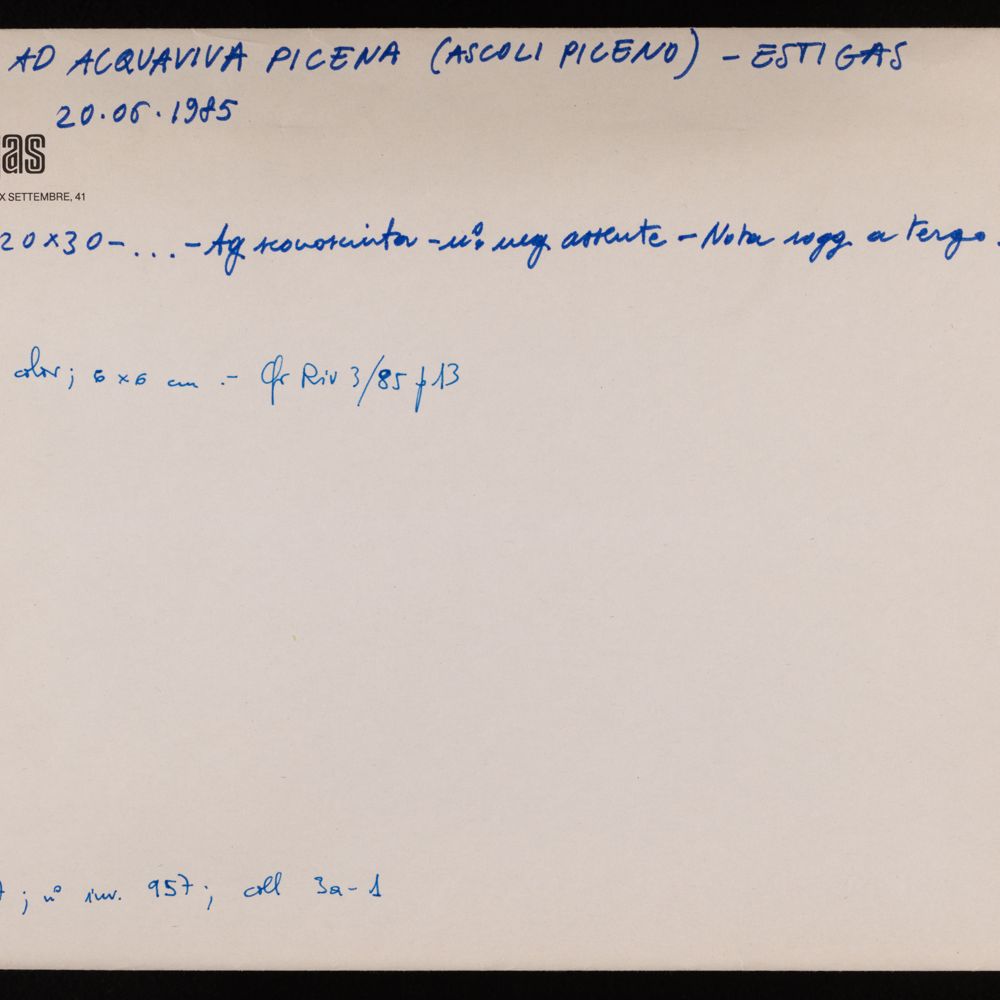 AD ACQUAVIVA PICENA (ASCOLI PICENO) - ESTIGAS
20.06.1985
as
X SETTEMBRE, 41
20x30-...-Ag sconosciuta - n° neg assente - Nota sogg a tergo.
color; 6x6 cm .- Cfr Riv 3/85 p 13
7; n° inv. 957; coll 3a-1